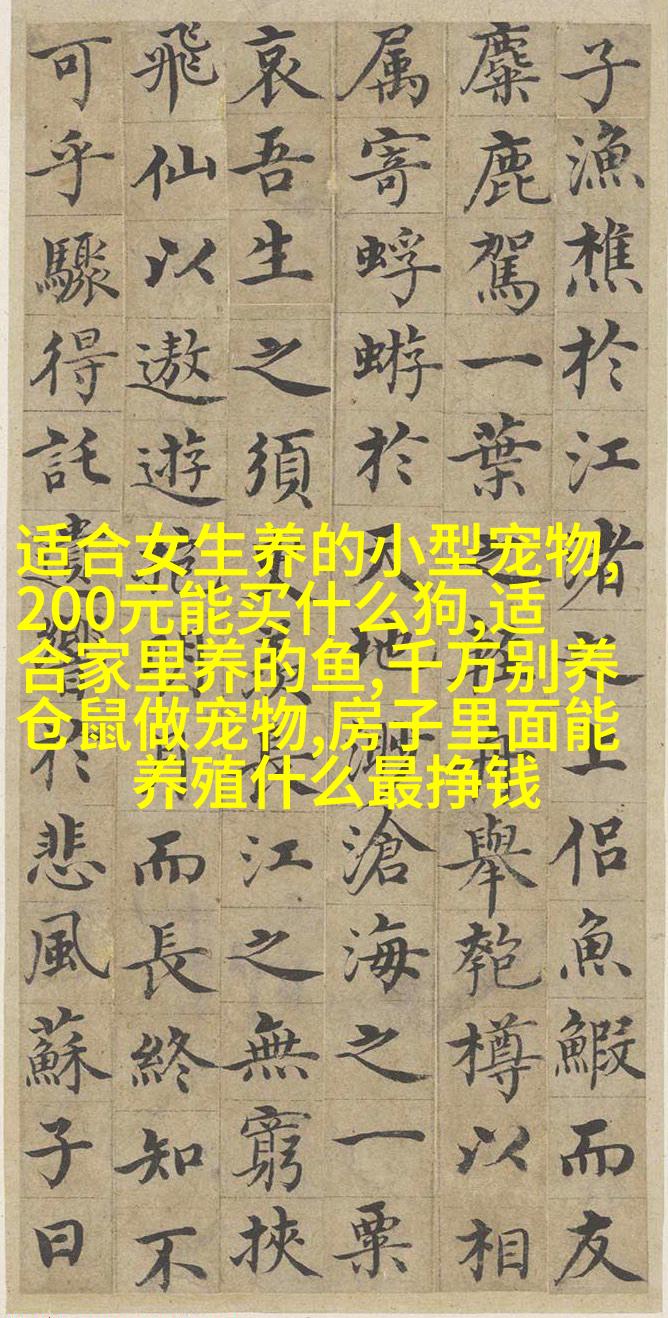 适合女生养的小型宠物,
200元能买什么狗,适
合家里养的鱼,千万别养
仓鼠做宠物,房子里面能
养殖什么最挣钱
子漁樵於江渚之上侣魚鰕而友
麋鹿駕一葉之舟舉匏樽以相
属寄蜉蝣於天地渺滄海之一粟
哀吾生之須臾羨長江之無窮挾
飛仙以遨遊抱明月而長終知不
可乎驟得託遺響於悲風蘇子曰